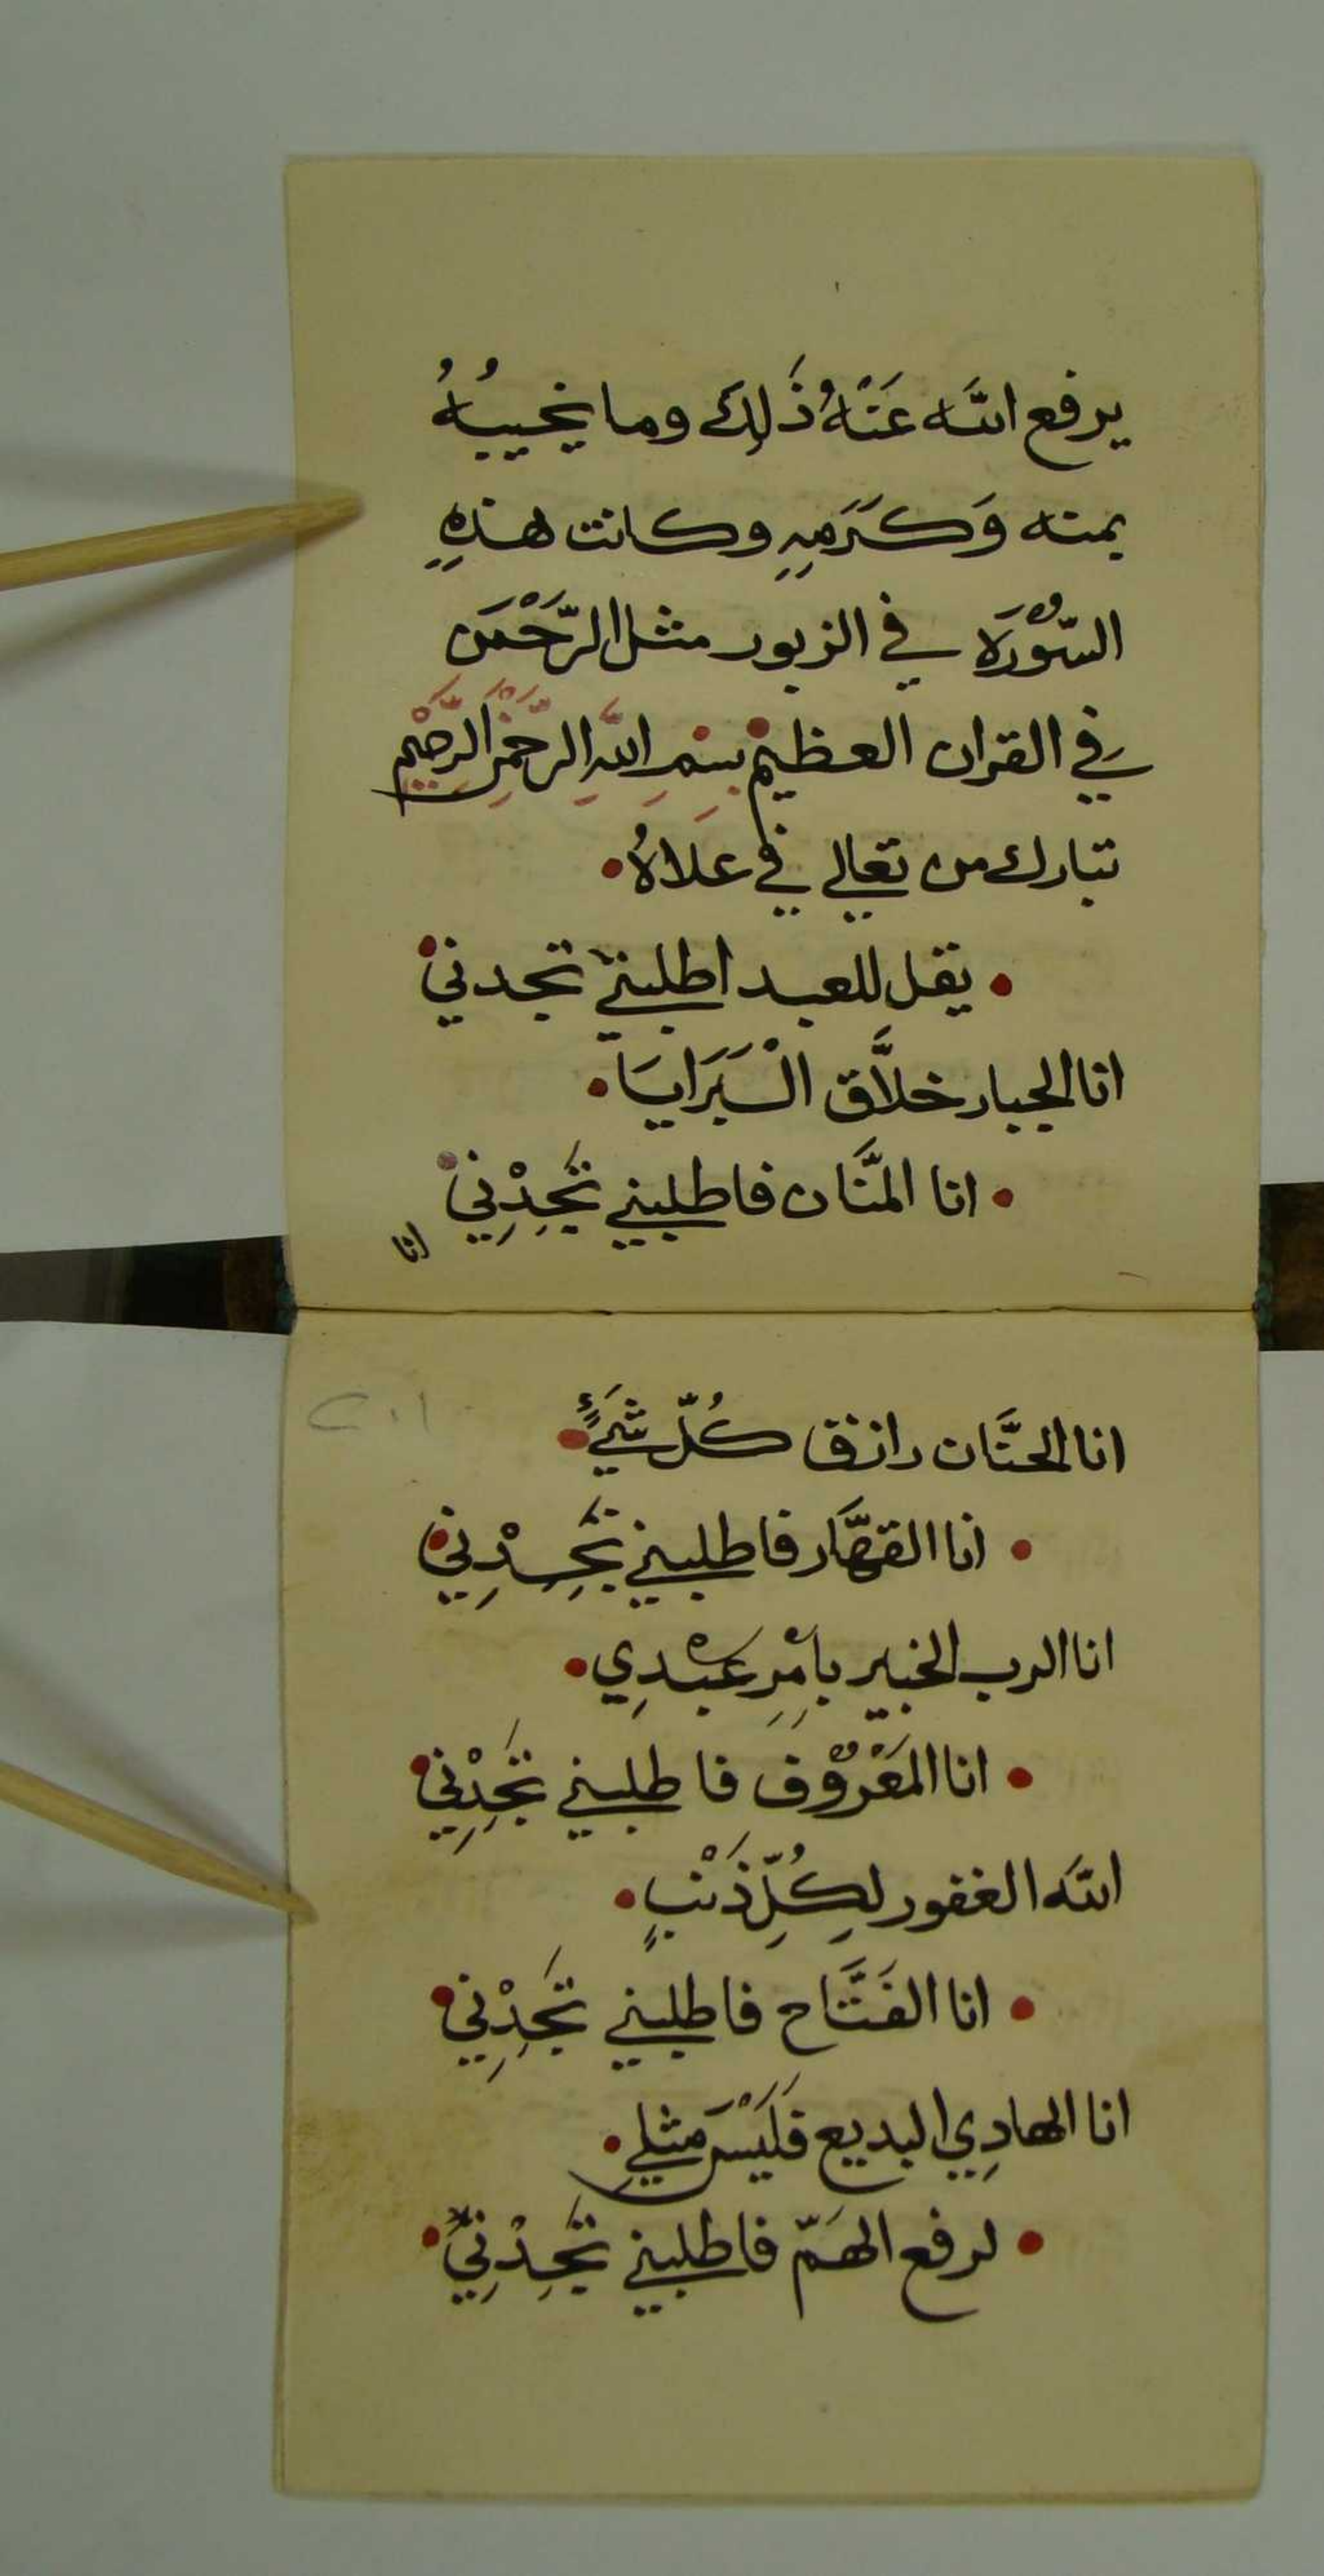 يرفع الله عَنْهُ ذَلِكَ وما يخيبُهُ
بمنه وَكَرَمِهِ وكانت هذهِ
السّوْرَة في الزبور مثل الرَّحْمَن
في القران العظيم بِسْمِ اللَّهِ الرَّحْمٰنِ الرَّحِيْمِ
تبارك من تعالي في علاهُ •
• يقل للعبد اطلبني تجدني •
انا الجبار خلَّاق الْبَرَايَا •
• انا المنَّان فاطلبني تَجِدْنِي •
انا
انا الحنَّان رازق كُلّ شَيْءٍ •
• انا القهَّار فاطلبني تَجِدْنِي •
انا الرب الخبير بامْرِ عَبْدِي •
• انا المَعْرُوْف فاطلبني تَجِدْنِي •
الله الغفور لِكُلِّ ذَنْبٍ •
• انا الفَتَّاح فاطلبني تَجِدْنِي •
انا الهادِي البديع فَلَيْسَ مثلي •
• لرفع الهَمّ فاطلبني تَجِدْنِي •